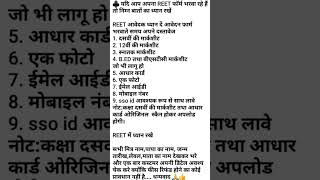 ♣ यदि आप अपना REET फॉर्म भरवा रहे हैं
तो निम्न बातों का ध्यान रखें
REET आवेदक ध्यान दें आवेदन फार्म
भरवाते समय अपने दस्तावेज
1. दसवीं की मार्कशीट
2. 12वीं की मार्कशीट
3. स्नातक मार्कशीट
4. B.ED तथा बीएसटीसी मार्कशीट
जो भी लागू हो
6. आधार कार्ड
6. एक फोटो
7. ईमेल आईडी
8. मोबाइल नंबर
9. sso id आवश्यक रूप से साथ लावे
नोट:कक्षा दसवीं की मार्कशीट तथा आधार
कार्ड ओरिजिनल स्कैन होकर अपलोड
होगी।
REET में ध्यान रखें
कभी मित्र नाम,पापा का नाम, जन्म
तारीख,लेवल,माता का नाम देखकर भरे
और एक बार कस्टमर अपनी डिटेल अवश्य
चेक करे क्योंकि फीस रिफंड होने का कोई
प्रावधान नहीं है.... धन्यवाद 🙏👍
जो भी लागू ह
5. आधार कार्ड
6. एक फोटो
7. ईमेल आईडी
8. मोबाइल नंब
9. sso id आ
नोट:कक्षा दस
कार्ड ओरिजि
ते साथ लावे
ट तथा आधार
कर अपलोड